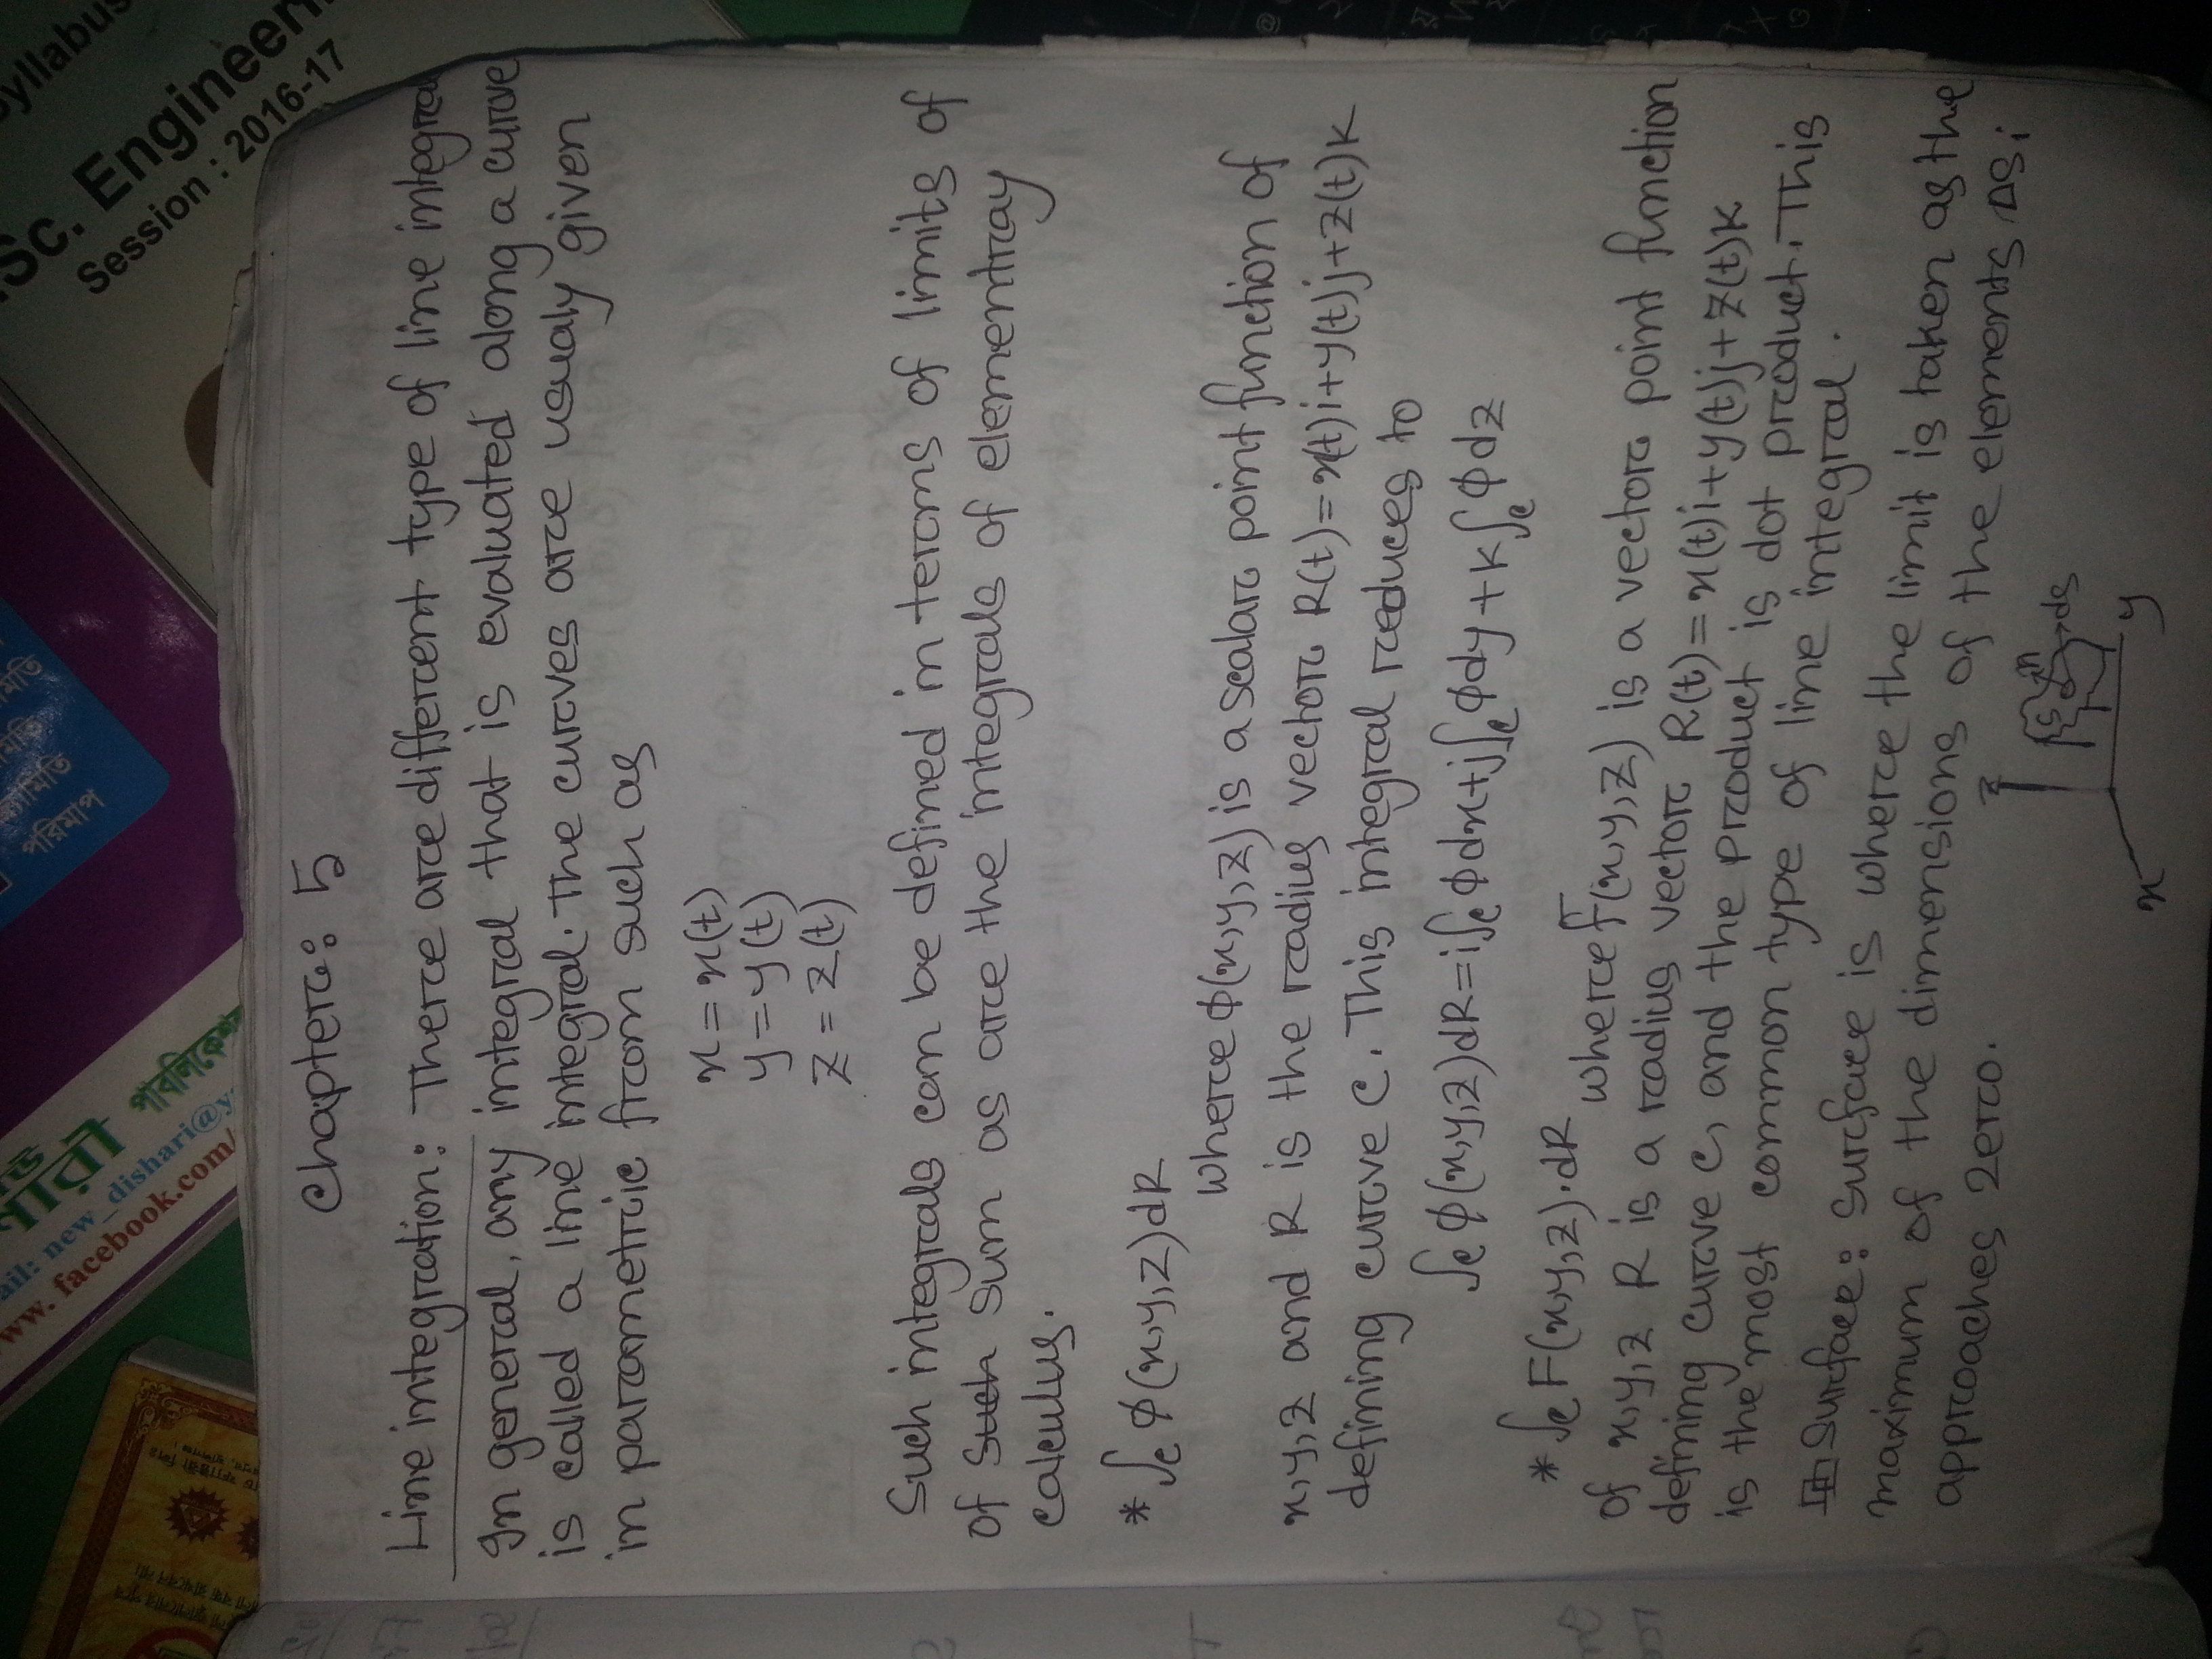 নারী পাবলিকেশ
ail: new_dishari@y
www.facebook.com/
পরিমাপ
মিতি
Syllabus
Sc. Engineer
Session : 2016-17
Chapter: 5
Line integration: There are different type of line integral
In general, any integral that is evaluated along a curve
is called a line integral. The curves are usualy given
in parametric from such as
x = x(t)
y = y(t)
z = z(t)
Such integrals can be defined in terms of limits of
of such sum as are the integrals of elementray
calculus.
* ∫c φ(x,y,z)dR
where φ(x,y,z) is a scalar point function of
x,y,z and R is the radius vector R(t)=x(t)i+y(t)j+z(t)k
defining curve c. This integral reduces to
∫c φ(x,y,z)dR=i∫c φdx+j∫c φdy+k∫c φdz
* ∫c F(x,y,z).dR where F(x,y,z) is a vector point function
of x,y,z R is a radius vector R(t)=x(t)i+y(t)j+z(t)k
defining curve c, and the product is dot product. This
is the most common type of line integral.
Surface: Surface is where the limit is taken as the
maximum of the dimensions of the elements ΔSi
approaches zero.
z
S n
ds
x y